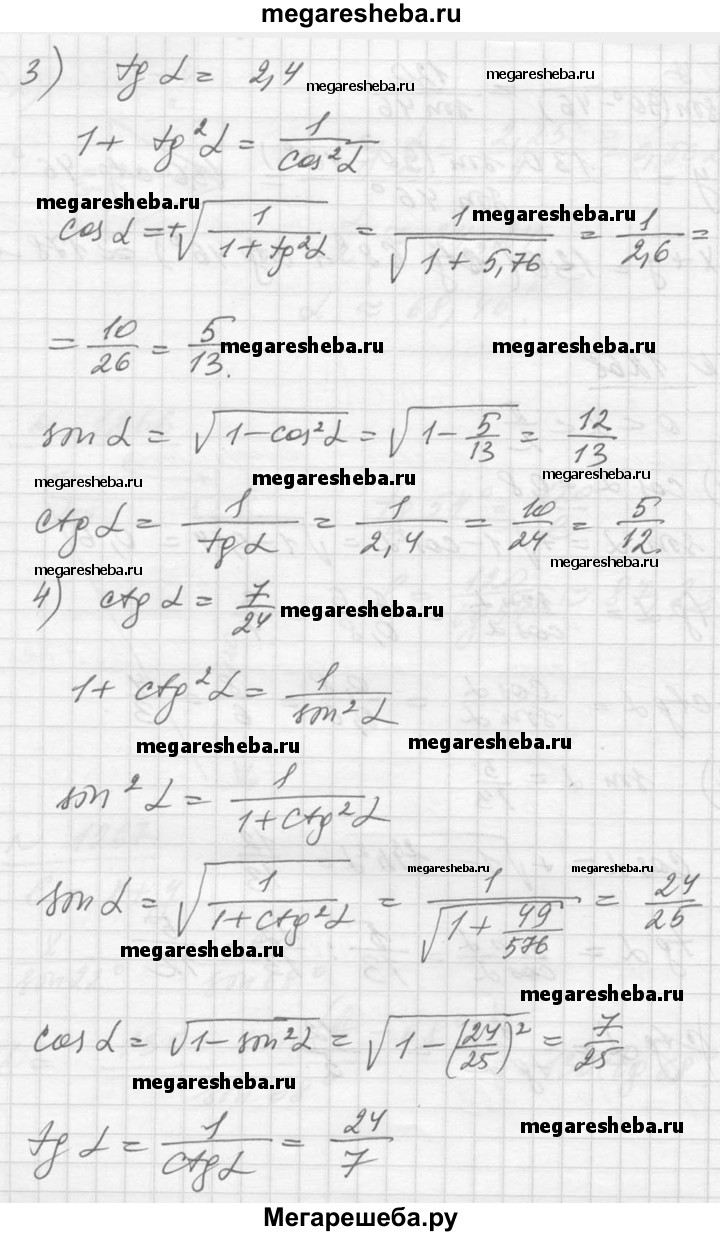 megaresheba.ru
3) tg α = 2,4 megaresheba.ru megaresheba.ru
1 + tg²α = 1/cos²α
megaresheba.ru megaresheba.ru
cos α = +√(1/(1 + tg²α)) = 1/√(1 + 5,76) = 1/2,6 =
= 10/26 = 5/13. megaresheba.ru megaresheba.ru
sin α = √(1 - cos²α) = √(1 - 5/13) = 12/13
megaresheba.ru megaresheba.ru megaresheba.ru
ctg α = 1/tg α = 1/2,4 = 10/24 = 5/12.
megaresheba.ru megaresheba.ru
4) ctg α = 7/24 megaresheba.ru
1 + ctg²α = 1/sin²α
megaresheba.ru megaresheba.ru
sin²α = 1/(1 + ctg²α)
megaresheba.ru megaresheba.ru
sin α = √(1/(1 + ctg²α)) = 1/√(1 + 49/576) = 24/25
megaresheba.ru
megaresheba.ru
cos α = √(1 - sin²α) = √(1 - (24/25)²) = 7/25
megaresheba.ru
megaresheba.ru
tg α = 1/ctg α = 24/7
Мегарешеба.ру